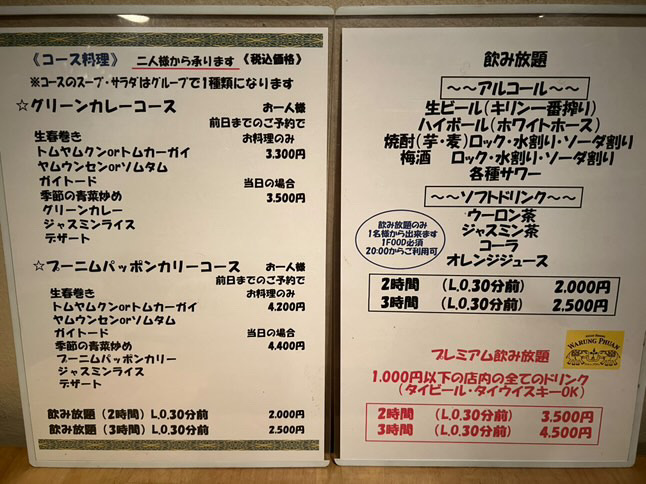 《コース料理》 二人様から承ります 《税込価格》
※コースのスープ・サラダはグループで1種類になります
☆グリーンカレーコース お一人様
前日までのご予約で
生春巻き お料理のみ
トムヤムクンorトムカーガイ 3.300円
ヤムウンセンorソムタム
ガイトード 当日の場合
季節の青菜炒め 3.500円
グリーンカレー
ジャスミンライス
デザート
☆プーニムパッポンカリーコース お一人様
前日までのご予約で
生春巻き お料理のみ
トムヤムクンorトムカーガイ 4.200円
ヤムウンセンorソムタム
ガイトード 当日の場合
季節の青菜炒め 4.400円
プーニムパッポンカリー
ジャスミンライス
デザート
飲み放題(2時間)L,O,30分前 2.000円
飲み放題(3時間)L,O,30分前 2.500円
飲み放題
~~アルコール~~
生ビール(キリン一番搾り)
ハイボール(ホワイトホース)
焼酎(芋・麦)ロック・水割り・ソーダ割り
梅酒 ロック・水割り・ソーダ割り
各種サワー
~~ソフトドリンク~~
ウーロン茶
ジャスミン茶
コーラ
オレンジジュース
飲み放題のみ
1名様から出来ます
1FOOD必須
20:00からご利用可
2時間 (L,O,30分前) 2.000円
3時間 (L,O,30分前) 2.500円
WARUNG PHUAN
プレミアム飲み放題
1.000円以下の店内の全てのドリンク
(タイビール・タイウイスキーOK)
2時間 (L,O,30分前) 3.500円
3時間 (L,O,30分前) 4.500円